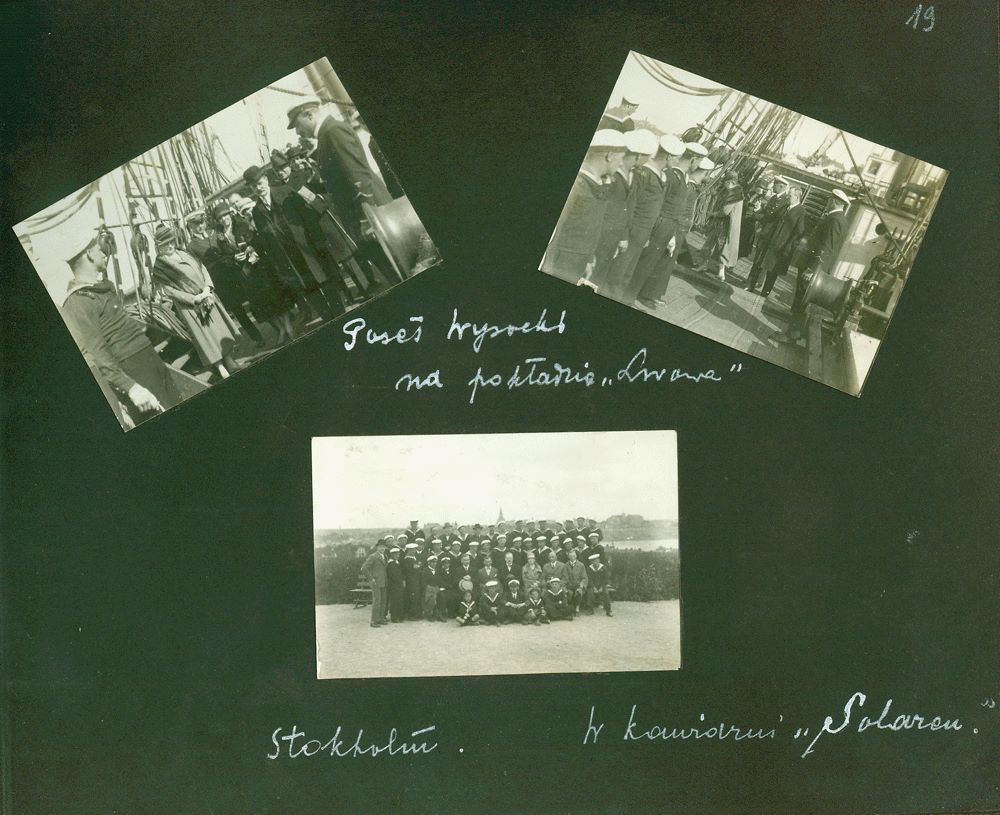 19
Poseł Wysocki
na pokładzie „Lwowa”
Stokholm.
W kawiarni „Solaren.”